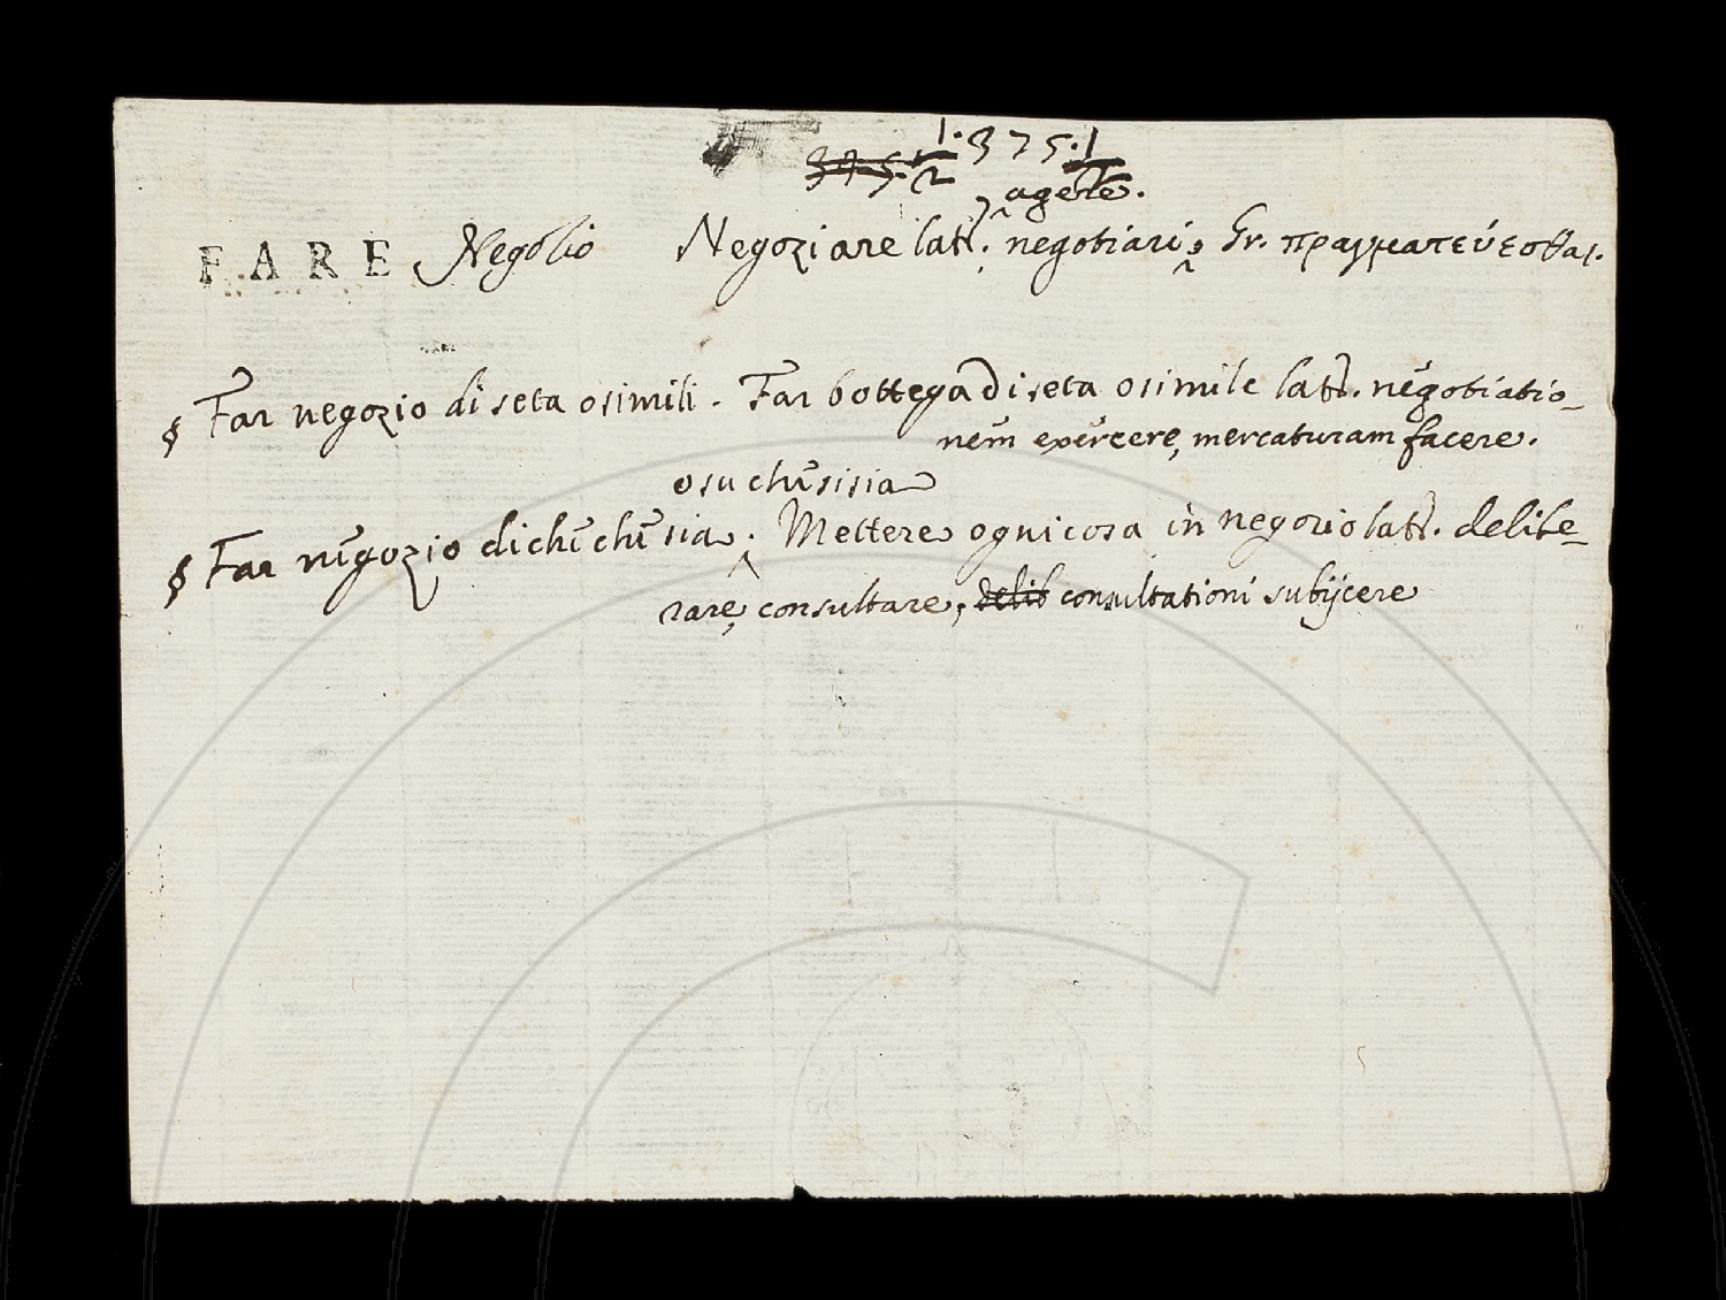 375. 1/2 1. 375. 1
, agere.
FARE Negozio Negoziare latt. negotiari, Gr. πραγματεύεσθαι.
§ Far negozio di seta o simili. Far bottega di seta o simile latt. negotiatio-
nem exercere, mercaturam facere.
o su che si sia
§ Far negozio di che che sia. Mettere ogni cosa in negozio latt. delibe-
rare, consultare, delib consultationi subijcere